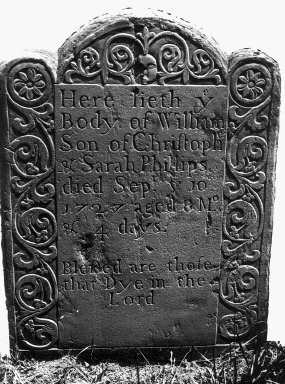 Here lieth y
Body of William
Son of Christoph
& Sarah Phillips
died Sep. y 10
1727 aged 8 Mo
& 4 days.
Blessed are those
that Dye in the
Lord